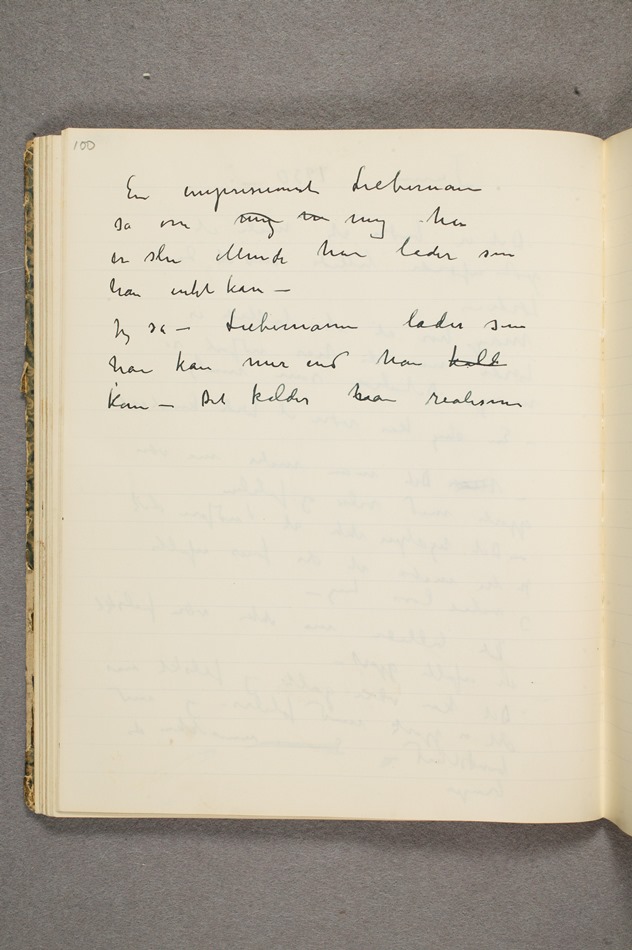 100
En impressionist Liebermann
sa om mig m mig han
er slu Munch han lader som
han intet kan –
Jeg sa – Liebermann lader som
han kan mer end han kall
kan – Det kalder han realisme